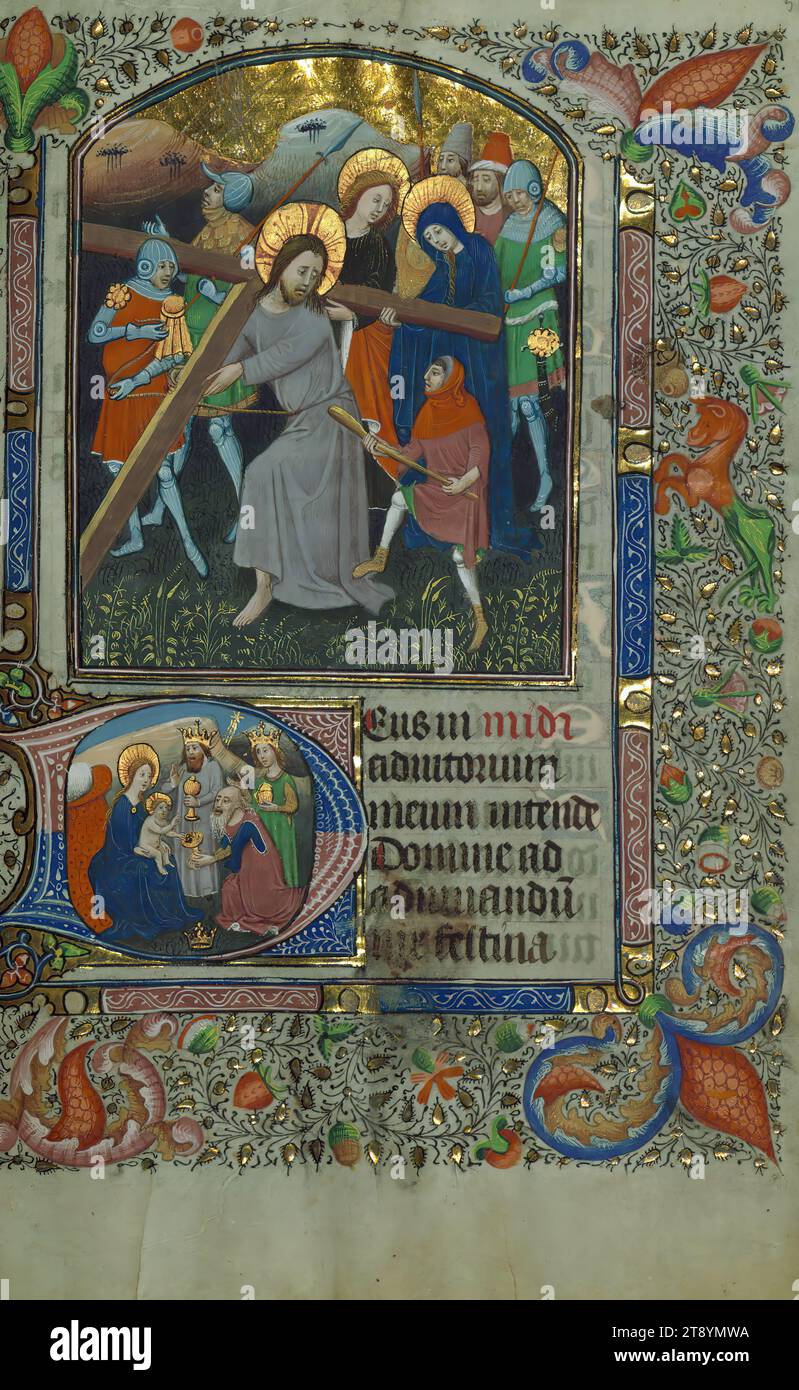 Deus in midi
adiutorium
meum intende
Domine ad
adiuuandū
me festina
alamy
Image ID: 2T8YMWA
www.alamy.com